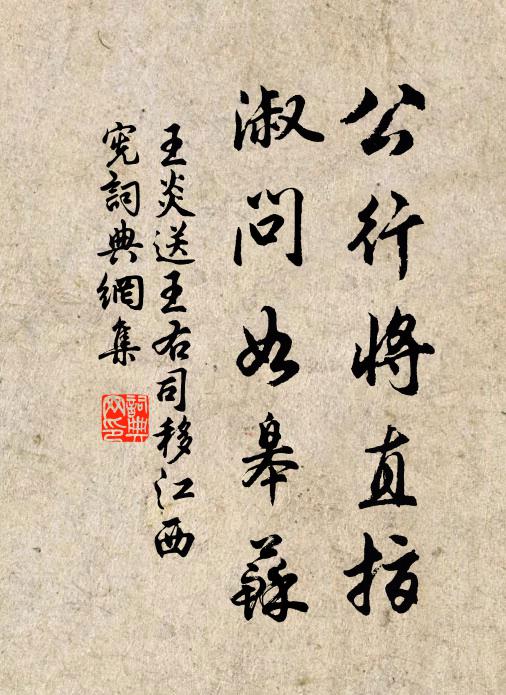 公行将直指
淑问如皋蘇
王炎送王右司移江西
宪詞典網集
詞典網印